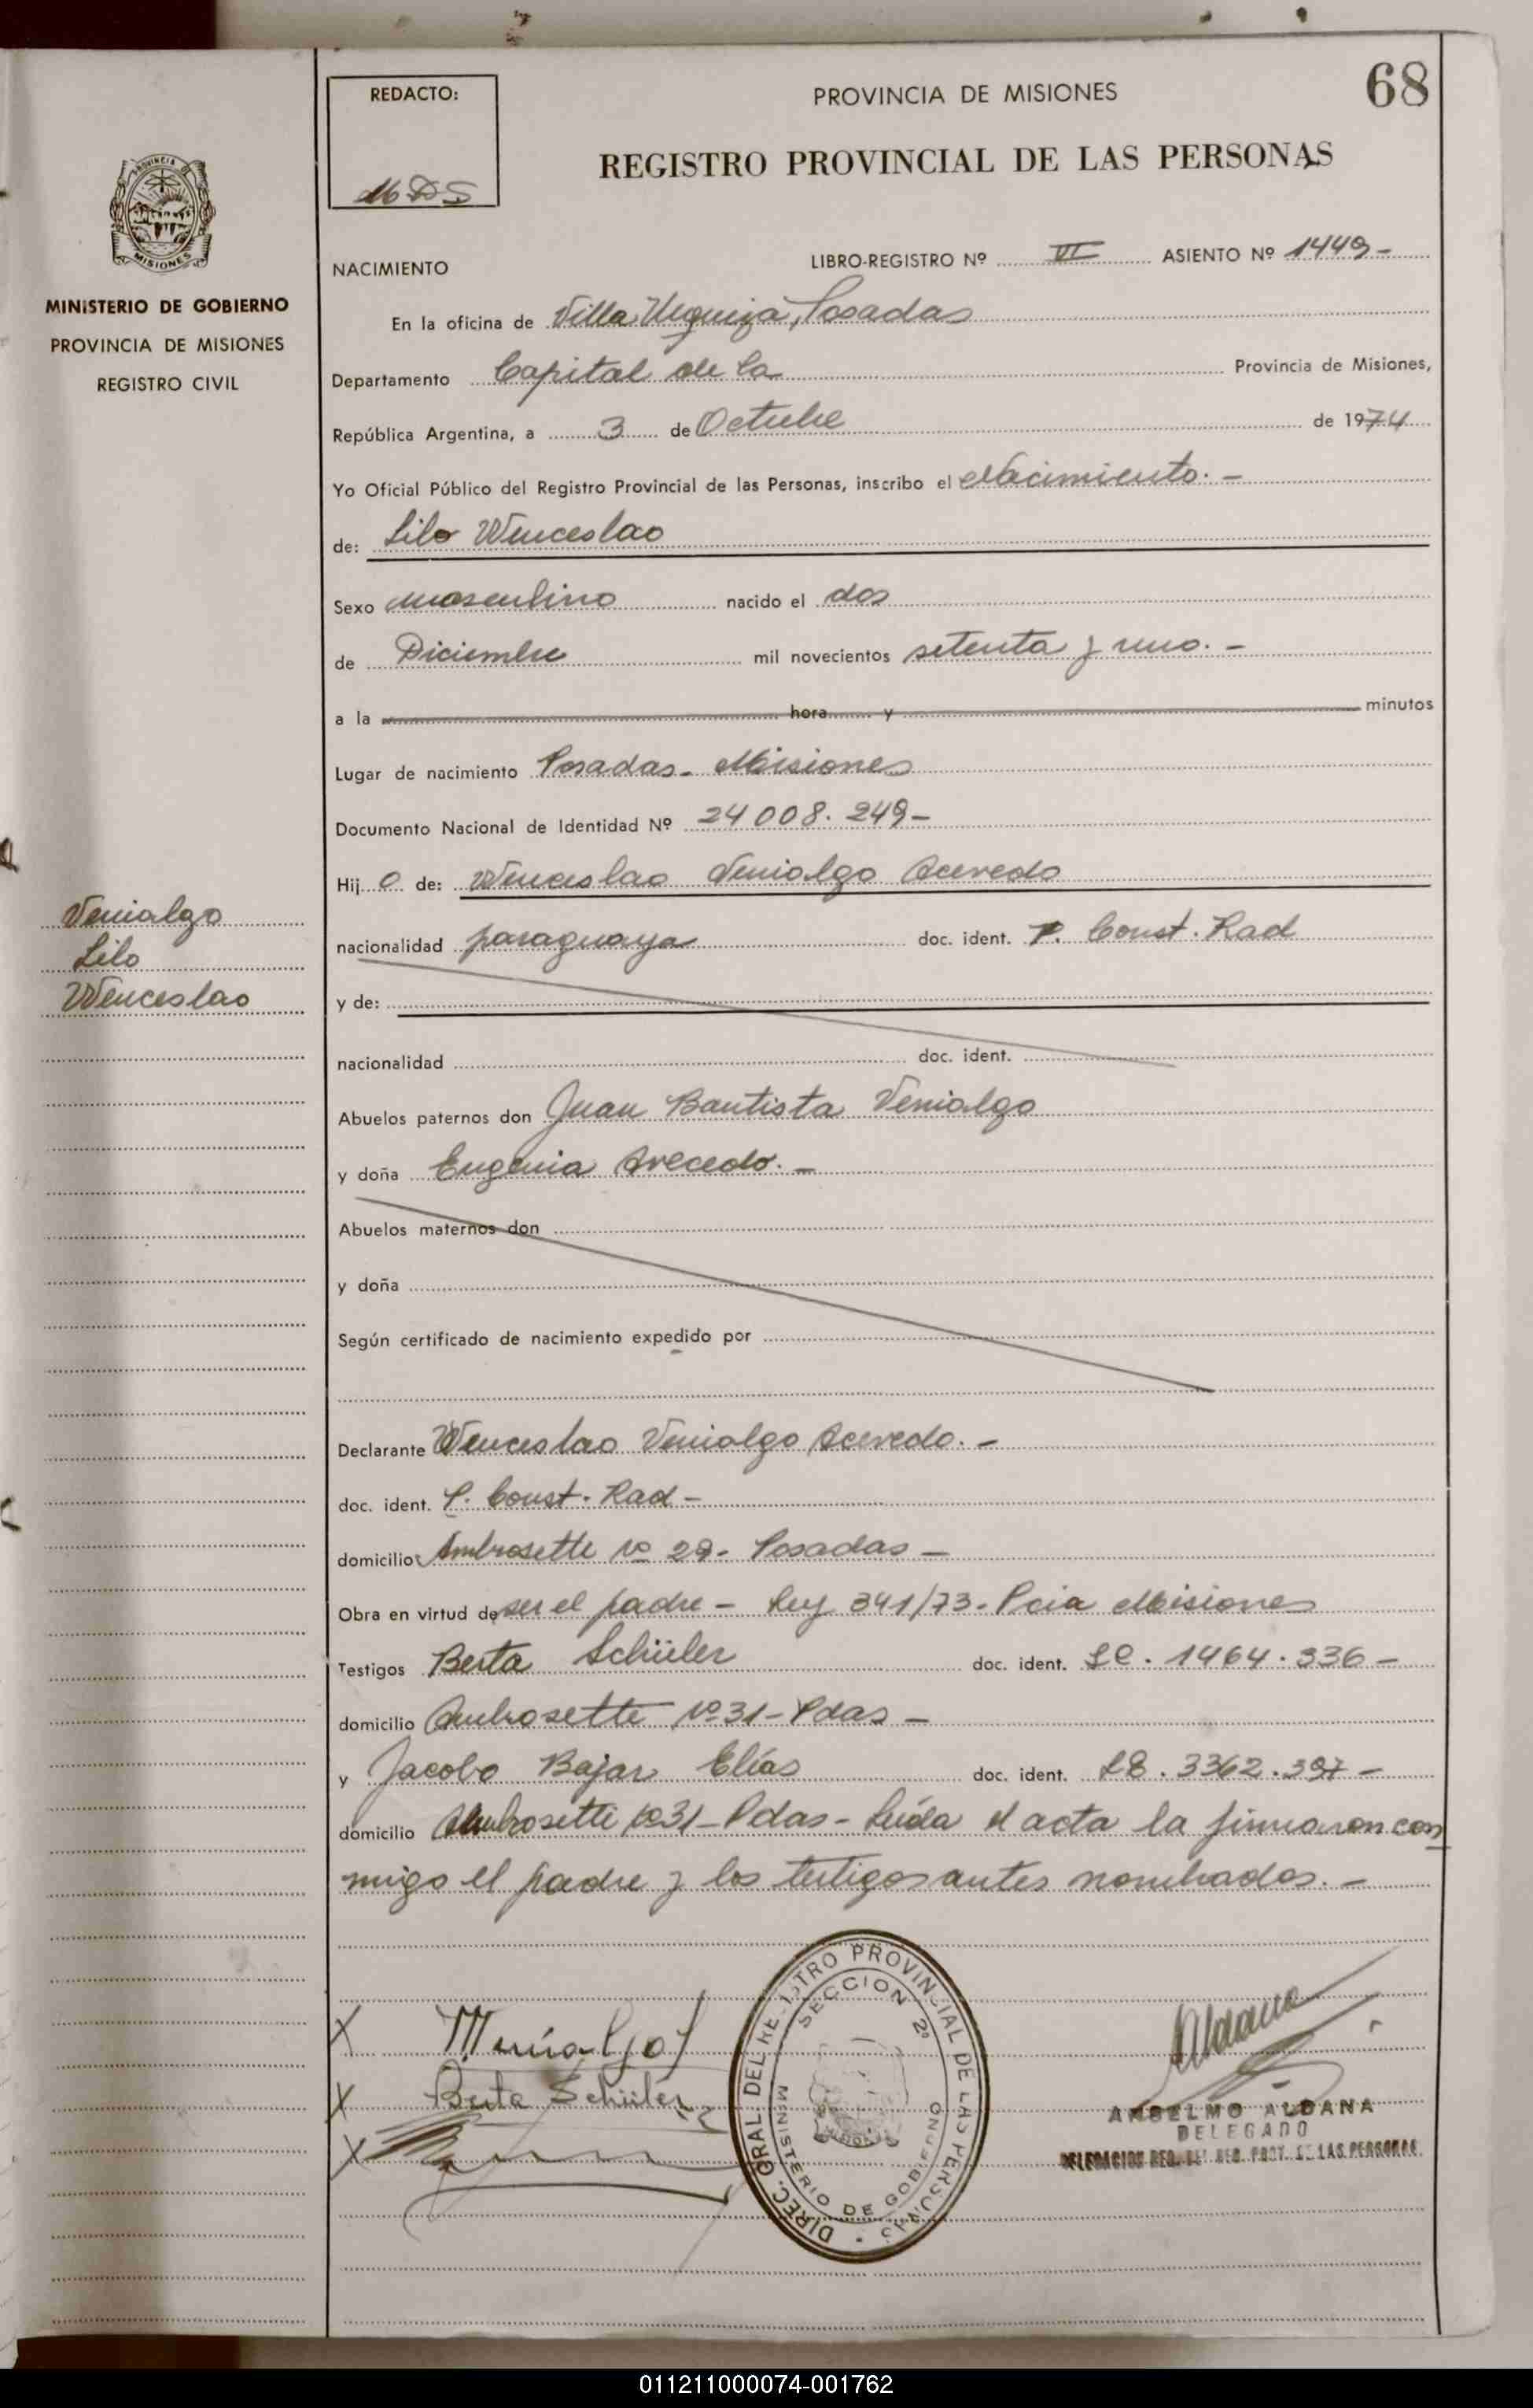 68
REDACTO:
PROVINCIA DE MISIONES
REGISTRO PROVINCIAL DE LAS PERSONAS
PROVINCIA
MISIONES
MINISTERIO DE GOBIERNO
PROVINCIA DE MISIONES
REGISTRO CIVIL
NACIMIENTO
LIBRO-REGISTRO Nº VI ASIENTO Nº 1449-
En la oficina de Villa Urquiza, Posadas
Departamento Capital de la Provincia de Misiones,
República Argentina, a 3 de Octubre de 1974
Yo Oficial Público del Registro Provincial de las Personas, inscribo el Nacimiento. -
de: Lilo Wenceslao
Sexo masculino nacido el dos
de Diciembre mil novecientos setenta y uno. -
a la hora y minutos
Lugar de nacimiento Posadas - Misiones
Documento Nacional de Identidad Nº 24008.249-
Hij o de: Wenceslao Venialgo Acevedo
nacionalidad paraguaya doc. ident. P. Const. Rad
y de:
nacionalidad doc. ident.
Abuelos paternos don Juan Bautista Venialgo
y doña Eugenia Avecedo. -
Abuelos maternos don
y doña
Según certificado de nacimiento expedido por
Declarante Wenceslao Venialgo Acevedo. -
doc. ident. P. Const. Rad -
domicilio Ambrosetti Nº 29 - Posadas -
Obra en virtud de ser el padre - Ley 341/73 - Pcia Misiones
Testigos Berta Schüler doc. ident. LC. 1464.336 -
domicilio Ambrosetti Nº 31 - Pdas -
y Jacobo Bajar Elías doc. ident. LE. 3362.397 -
domicilio Ambrosetti Nº 31 - Pdas - Leída el acta la firmaron con
migo el padre y los testigos antes nombrados. -
Venialgo
Lilo
Wenceslao
X
X Berta Schüler
X
DIREC. GRAL DEL REGISTRO PROVINCIAL DE LAS PERSONAS
SECCION 2º
MINISTERIO DE GOBIERNO
Aldana
ANSELMO ALDANA
DELEGADO
DELEGACION REG. DEL REG. PROV. DE LAS PERSONAS
011211000074-001762